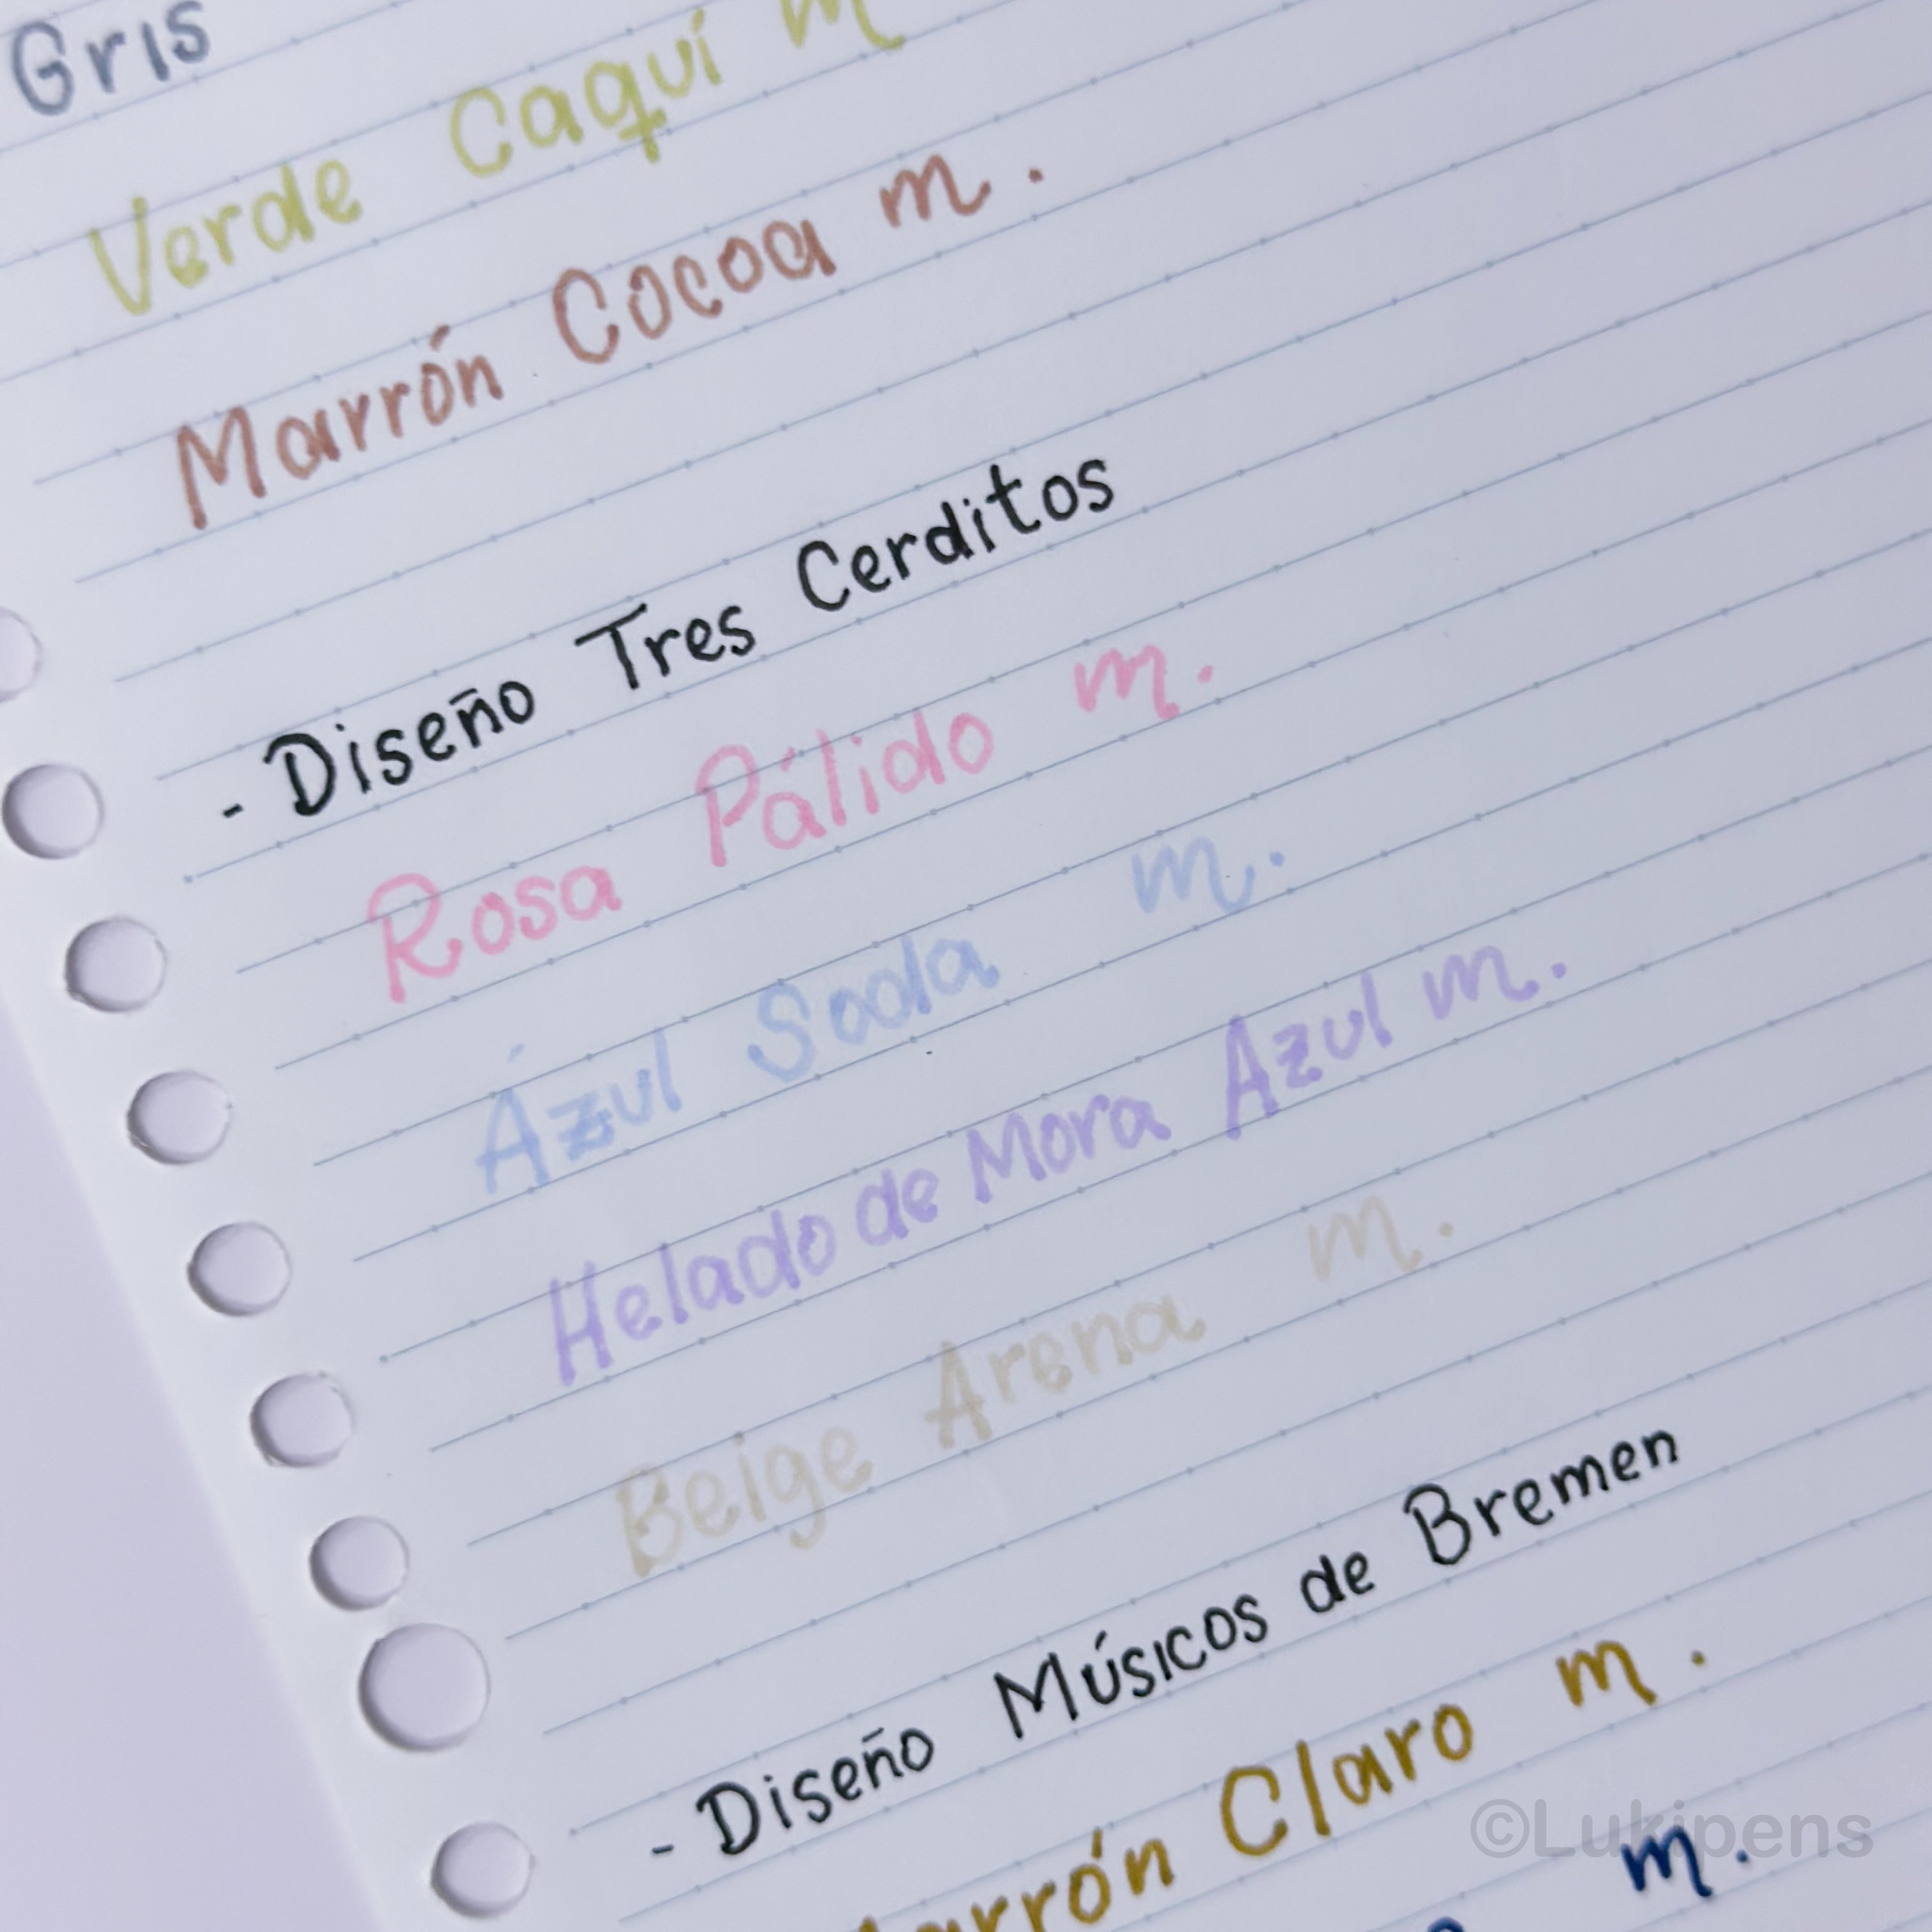 Gris
Verde Caquí m
Marrón Cocoa m.
- Diseño Tres Cerditos
Rosa Pálido m.
Ázul Soda m.
Helado de Mora Azul m.
Beige Arena m.
- Diseño Músicos de Bremen
Claro m.
m.
©Lukipens